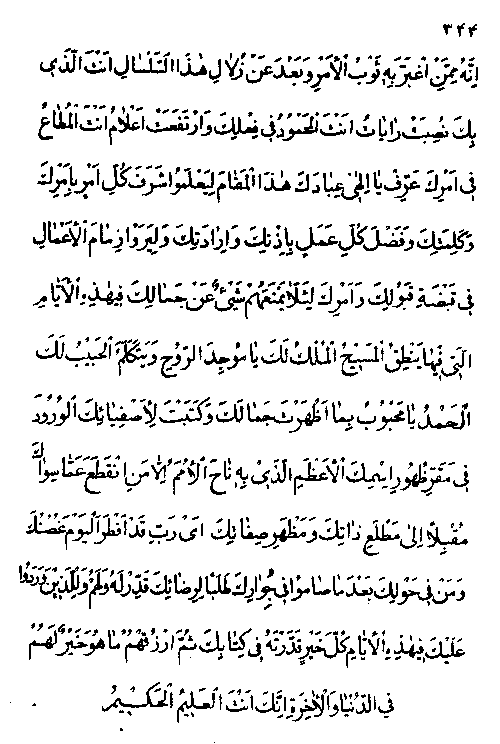 ٣۴۴
اِنَّهُ مِمَّنْ اغْبَرَّ بِهِ ثَوْبُ الْاَمْرِ وَ بَعُدَ عَنْ زُلَالِ هٰذَا السَّلْسَالِ اَنْتَ الَّذِی
بِكَ نُصِبَتْ رَایَاتُ اَنْتَ الْمَحْمُودُ فِی فِعْلِكَ وَ ارْتَفَعَتْ اَعْلَامُ اَنْتَ الْمُطَاعُ
فِی اَمْرِكَ عَرِّفْ یَا اِلٰهِی عِبَادَكَ هٰذَا الْمَقَامَ لِیَعْلَمُوا شَرَفَ كُلِّ اَمْرٍ بِاَمْرِكَ
وَ كَلِمَتِكَ وَ فَضْلَ كُلِّ عَمَلٍ بِاِذْنِكَ وَ اِرَادَتِكَ وَ لِیَرَوْا زِمَامَ الْاَعْمَالِ
فِی قَبْضَةِ قَبُولِكَ وَ اَمْرِكَ لِئَلَّا یَمْنَعَهُمْ شَیْئٌ عَنْ جَمَالِكَ فِیهٰذِهِ الْاَیَّامِ
الَّتِی فِیهَا یَنْطِقُ الْمَسِیحُ الْمُلْكُ لَكَ یَا مُوجِدَ الرُّوحِ وَ یَتَكَلَّمُ الْحَبِیبُ لَكَ
الْحَمْدُ یَا مَحْبُوبُ بِمَا اَظْهَرْتَ جَمَالَكَ وَ كَتَبْتَ لِاَصْفِیَائِكَ الْوُرُودَ
فِی مَقَرِّ ظُهُورِ اِسْمِكَ الْاَعْظَمِ الَّذِی بِهِ نَاحَ الْاُمَمُ اِلَّا مَنِ انْقَطَعَ عَمَّا سِوَاكَ
مُقْبِلًا اِلٰی مَطْلَعِ ذَاتِكَ وَ مَظْهَرِ صِفَاتِكَ اَیْ رَبِّ قَدْ اَفْطَرَ الْیَوْمَ غُصْنُكَ
وَ مَنْ فِی حَوْلِكَ بَعْدَ مَا صَامُوا فِی جِوَارِكَ طَلَبًا لِرِضَائِكَ قَدِّرْ لَهُ وَ لَهُمْ وَ لِلَّذِینَ وَرَدُوا
عَلَیْكَ فِیهٰذِهِ الْاَیَّامِ كُلَّ خَیْرٍ قَدَّرْتَهُ فِی كِتَابِكَ ثُمَّ ارْزُقْهُمْ مَا هُوَ خَیْرٌ لَهُمْ
فِی الدُّنْیَا وَ الْاٰخِرَةِ اِنَّكَ اَنْتَ الْعَلِیمُ الْحَكِیمُ